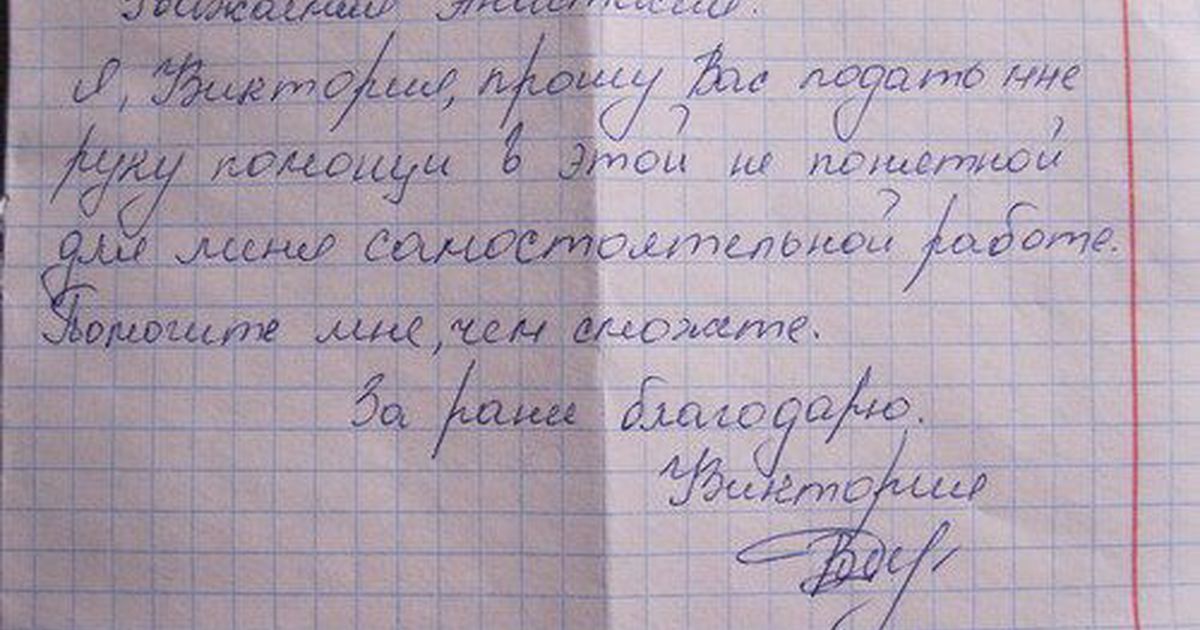 Уважаемая Анастасия.
Я, Виктория, прошу Вас подать мне
руку помощи в этой не понятной
для меня самостоятельной работе.
Помогите мне, чем сможете.
За рани благодарю.
Виктория